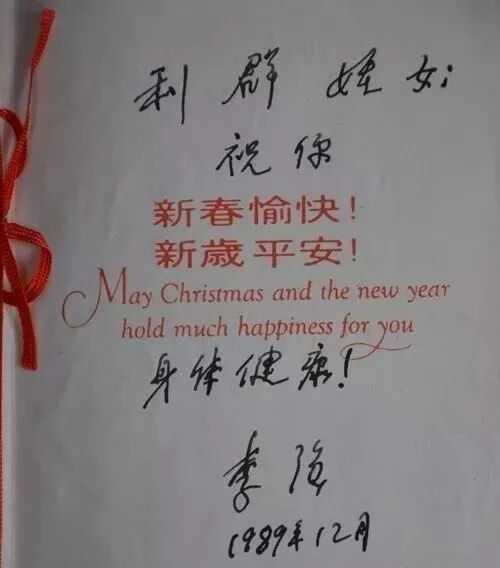 利群姪女:
祝你
新春愉快!
新歲平安!
May Christmas and the new year
hold much happiness for you
身体健康!
李强
1989年12月